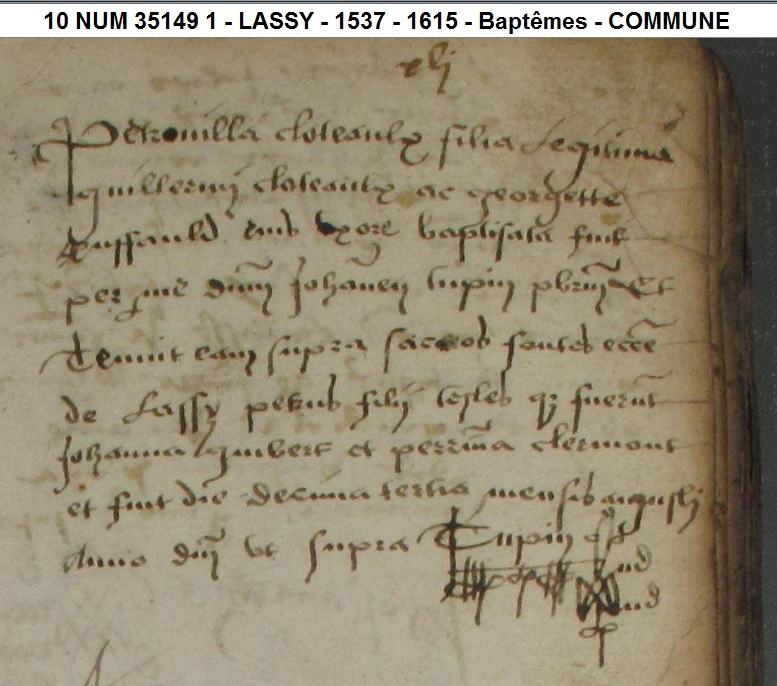 10 NUM 35149 1 - LASSY - 1537 - 1615 - Baptêmes - COMMUNE
xli
Petronilla cloteaulx filia legitima
guillermi cloteaulx ac georgette
eius uxore baptisata fuit
per me dnm Johanem lupin pbrm Et
Tenuit eam supra sacros fontes eccle
de Lassy petrus filij testes q fuerut
Johanna Jmbert et perrina clermont
et fuit die decima tertia mensis augusti
Anno dni ut supra Lupin